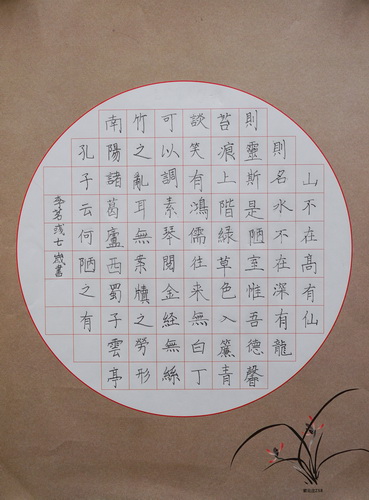 山不在高有仙
則名水不在深有龍
則靈斯是陋室惟吾德馨
苔痕上階綠草色入簾青
談笑有鴻儒往来無白丁
可以調素琴閱金経無絲
竹之亂耳無案牘之勞形
南陽諸葛廬西蜀子雲亭
孔子云何陋之有
七歲書